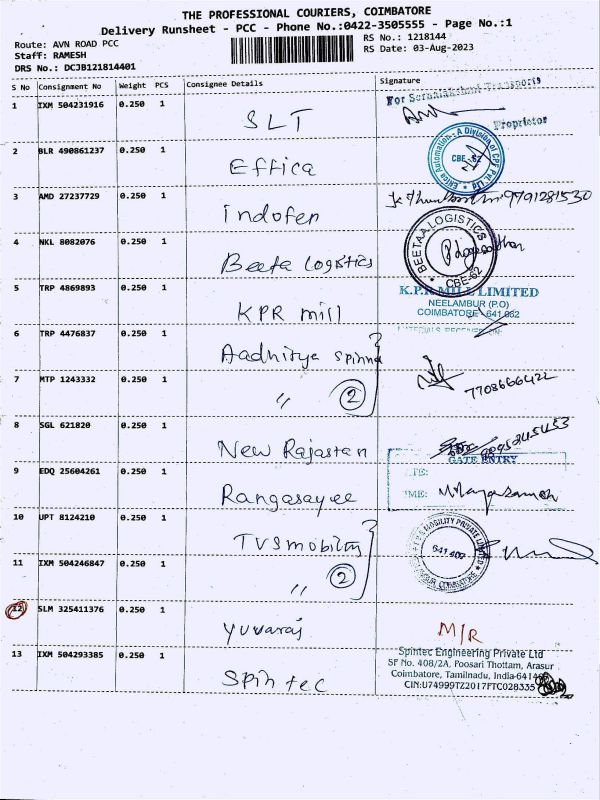 THE PROFESSIONAL COURIERS, COIMBATORE
Delivery Runsheet - PCC - Phone No.:0422-3505555 - Page No.:1
Route: AVN ROAD PCC
Staff: RAMESH
DRS No.: DCJB121814401
RS No.: 1218144
RS Date: 03-Aug-2023
S No Consignment No Weight PCS Consignee Details Signature
1 IXM 504231916 0.250 1 SLT
For Transports
Proprietor
2 BLR 490861237 0.250 1 Effica
Automation - A Division of CPF Pvt. Ltd
CBE-62
3 AMD 27237729 0.250 1 indofen 9791281530
4 NKL 8082076 0.250 1 Beeta Logistics
BEETAA LOGISTICS
CBE-62
5 TRP 4869893 0.250 1 KPR mill
K.P.R MILL LIMITED
NEELAMBUR (P.O)
COIMBATORE - 641 062
6 TRP 4476837 0.250 1 Aadhitya Spinn
7 MTP 1243332 0.250 1 " 2 7708666422
8 SGL 621820 0.250 1 New Rajastan
GATE ENTRY
9 EDQ 25604261 0.250 1 Rangasayee
10 UPT 8124210 0.250 1 TVS mobility
MOBILITY PRIVATE LIMITED
641 407
11 IXM 504246847 0.250 1 " 2
12 SLM 325411376 0.250 1 Yuvaraj M/R
13 IXM 504293385 0.250 1 Spin tec
Spintec Engineering Private Ltd
SF No. 408/2A, Poosari Thottam, Arasur
Coimbatore, Tamilnadu, India-641407
CIN:U74999TZ2017FTC028335